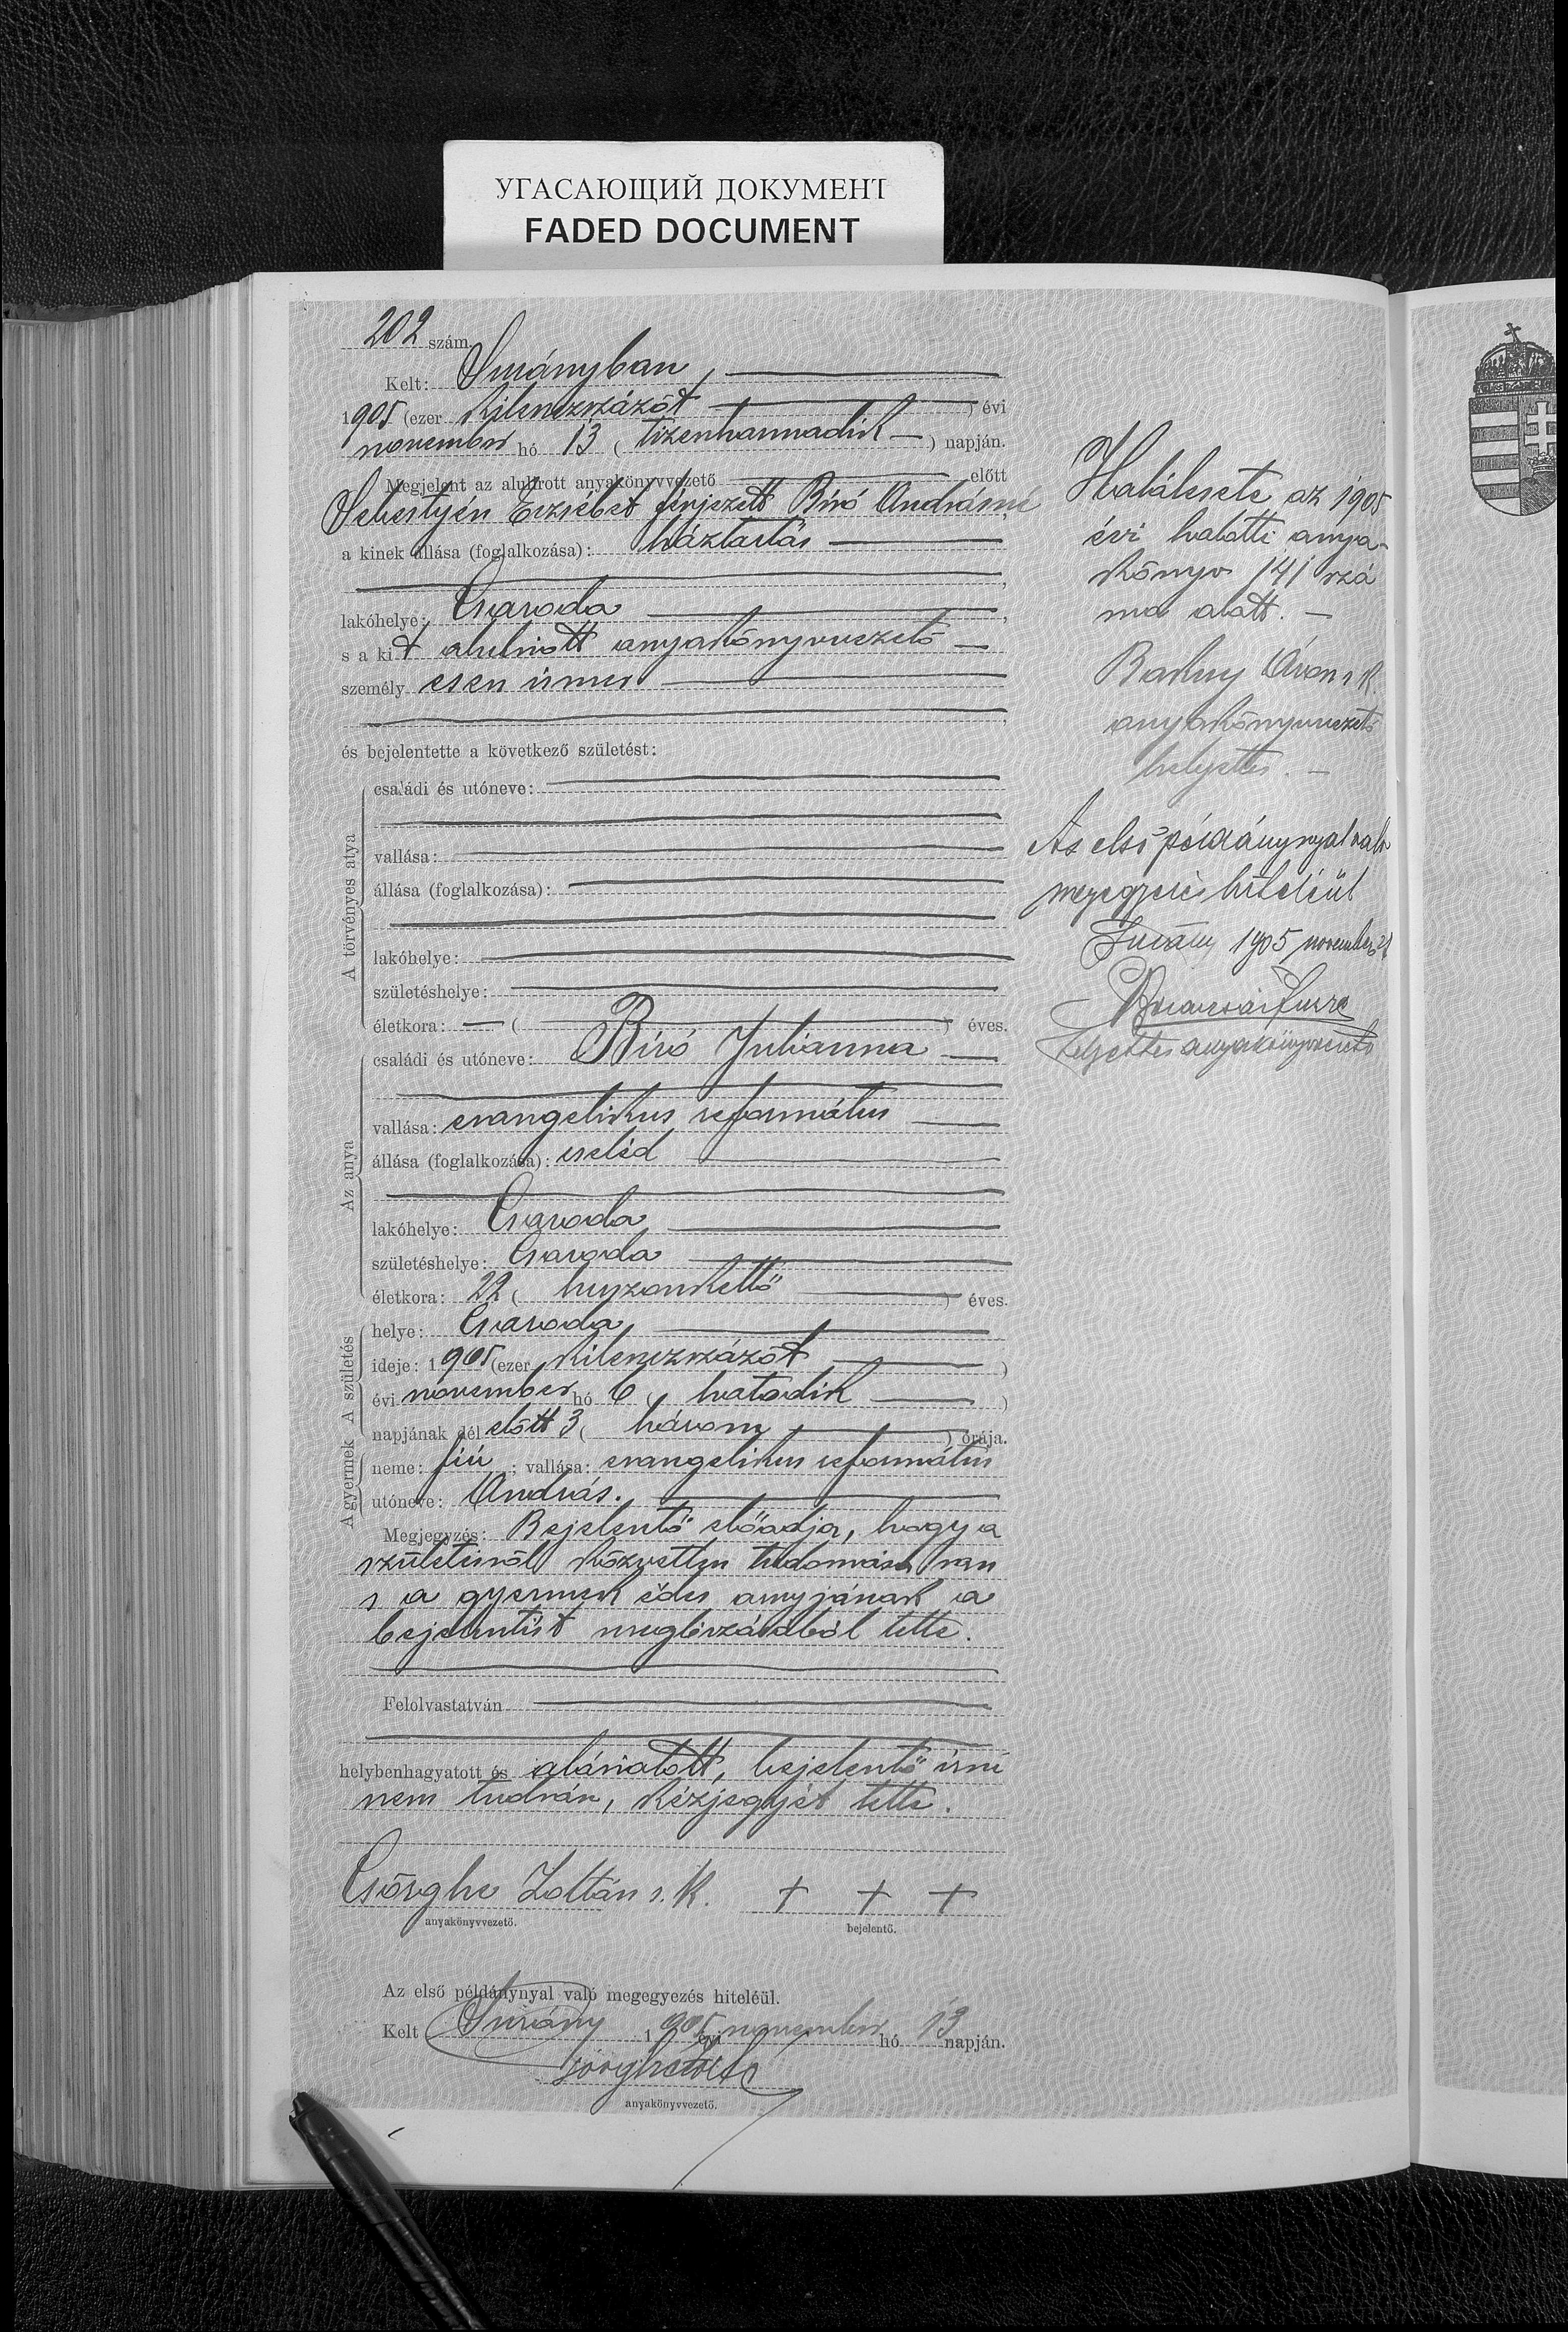 УГАСАЮЩИЙ ДОКУМЕНТ
FADED DOCUMENT
202 szám.
Kelt: Surányban,
1905 (ezer kilenczszázöt ) évi
november hó 13 ( tizenharmadik ) napján.
Megjelent az alulirott anyakönyvvezető előtt
Sebestyén Erzsébet férjezett Biró Andrásné
a kinek állása (foglalkozása): háztartás
lakóhelye: Csaroda
s a kit alulirott anyakönyvvezető
személyesen ismer
és bejelentette a következő születést:
A törvényes atya
családi és utóneve:
vallása:
állása (foglalkozása):
lakóhelye:
születéshelye:
életkora: — ( ) éves.
Az anya
családi és utóneve: Biró Julianna
vallása: evangelikus református
állása (foglalkozása): cseléd
lakóhelye: Csaroda
születéshelye: Csaroda
életkora: 22 ( huszonkettő ) éves.
A születés
helye: Csaroda
ideje: 1905 (ezer kilenczszázöt )
évi november hó 6 ( hatodik )
napjának dél előtt 3 ( három ) órája.
A gyermek
neme: fiú ; vallása: evangelikus református
utóneve: András.
Megjegyzés: Bejelentő előadja, hogy a
születésről közvetlen tudomása van
s a gyermek édes anyjának a
bejelentést megbizásából tette.
Felolvastatván
helybenhagyatott és aláiratott, bejelentő irni
nem tudván, kézjegyét tette.
Csörghe Zoltán s. k. + + +
anyakönyvvezető. bejelentő.
Az első példánynyal való megegyezés hiteléül.
Kelt Surány 1905 évi november hó 13 napján.
anyakönyvvezető.
Halálesete az 1905
évi halotti anya-
könyv 141 szá
ma alatt. —
Áron s. k.
anyakönyvvezető
helyettes. —
Az első példánynyal való
megegyezés hiteléül
Surány 1905 november 21
helyettes anyakönyvvezető